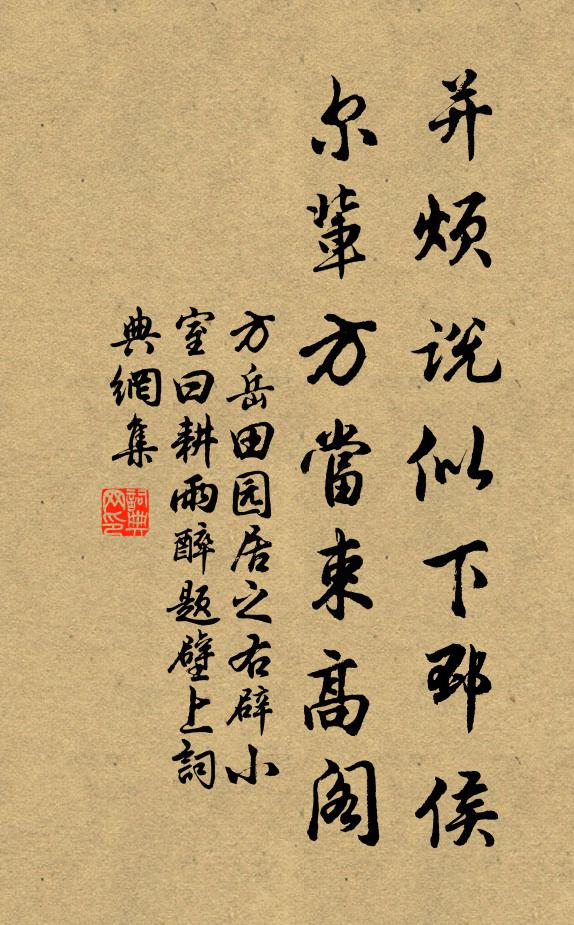 并烦说似下邳侯
尔辈方當束高阁
方岳田园居之右辟小
室曰耕雨醉题壁上詞
典網集
詞典网印